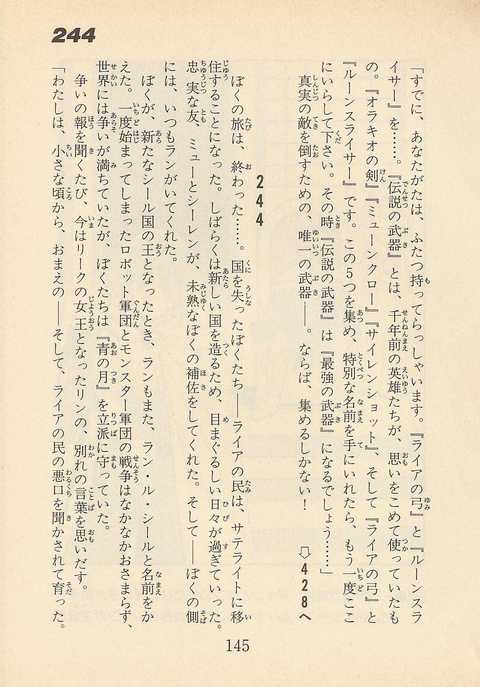 244
「すでに、あなたがたは、ふたつ持ってらっしゃいます。『ライアの弓』と『ルーンスラ
イサー』を……。『伝説の武器』とは、千年前の英雄たちが、思いをこめて使っていたも
の。『オラキオの剣』『ミューンクロー』『サイレンショット』、そして『ライアの弓』と
『ルーンスライサー』です。この5つを集め、特別な名前を手にいれたら、もう一度ここ
にいらして下さい。その時『伝説の武器』は『最強の武器』になるでしょう……」
真実の敵を倒すための、唯一の武器――。ならば、集めるしかない！　⇨428へ
244
ぼくの旅は、終わった……。国を失ったぼくたち――ライアの民は、サテライトに移
住することになった。しばらくは新しい国を造るため、目まぐるしい日々が過ぎていった。
忠実な友、ミューとシーレンが、未熟なぼくの補佐をしてくれた。そして――ぼくの側
には、いつもランがいてくれた。
ぼくが、新たなシール国の王となったとき、ランもまた、ラン・ル・シールと名前をか
えた。一度始まってしまったロボット軍団とモンスター軍団の戦争はなかなかおさまらず、
世界には争いが満ちていたが、ぼくたちは『青の月』を立派に守っていた。
争いの報を聞くたび、今はリークの女王となったリンの、別れの言葉を思いだす。
「わたしは、小さな頃から、おまえの――そして、ライアの民の悪口を聞かされて育った。
145